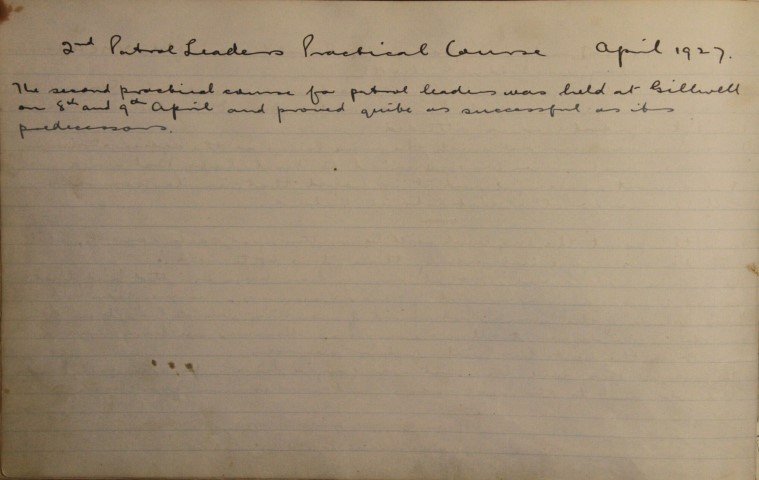 2nd Patrol Leaders Practical Course April 1927.
The second practical course for patrol leaders was held at Gillwell
on 8th and 9th April and proved quite as successful as its
predecessors.